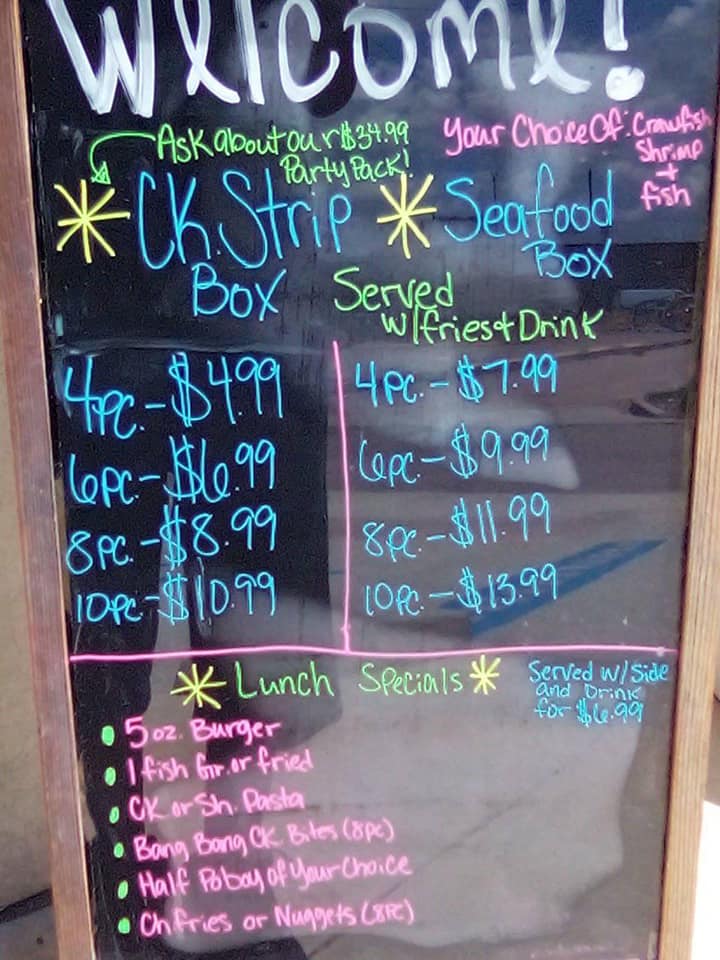 Welcome!
Ask about our $34.99
Party Pack!
Your Choice Of: Crawfish
Shrimp
+
fish
CK. Strip
Box
Seafood
Box
Served
w/fries + Drink
4pc. - $4.99
6pc - $6.99
8pc. - $8.99
10pc - $10.99
4pc. - $7.99
6pc. - $9.99
8pc. - $11.99
10pc. - $13.99
Lunch Specials
Served w/ Side
and Drink
for $6.99
5 oz. Burger
1 fish Grr. or fried
CK or Sh. Pasta
Bang Bang CK. Bites (8pc)
Half Poboy of Your Choice
Ch fries or Nuggets (8pc)